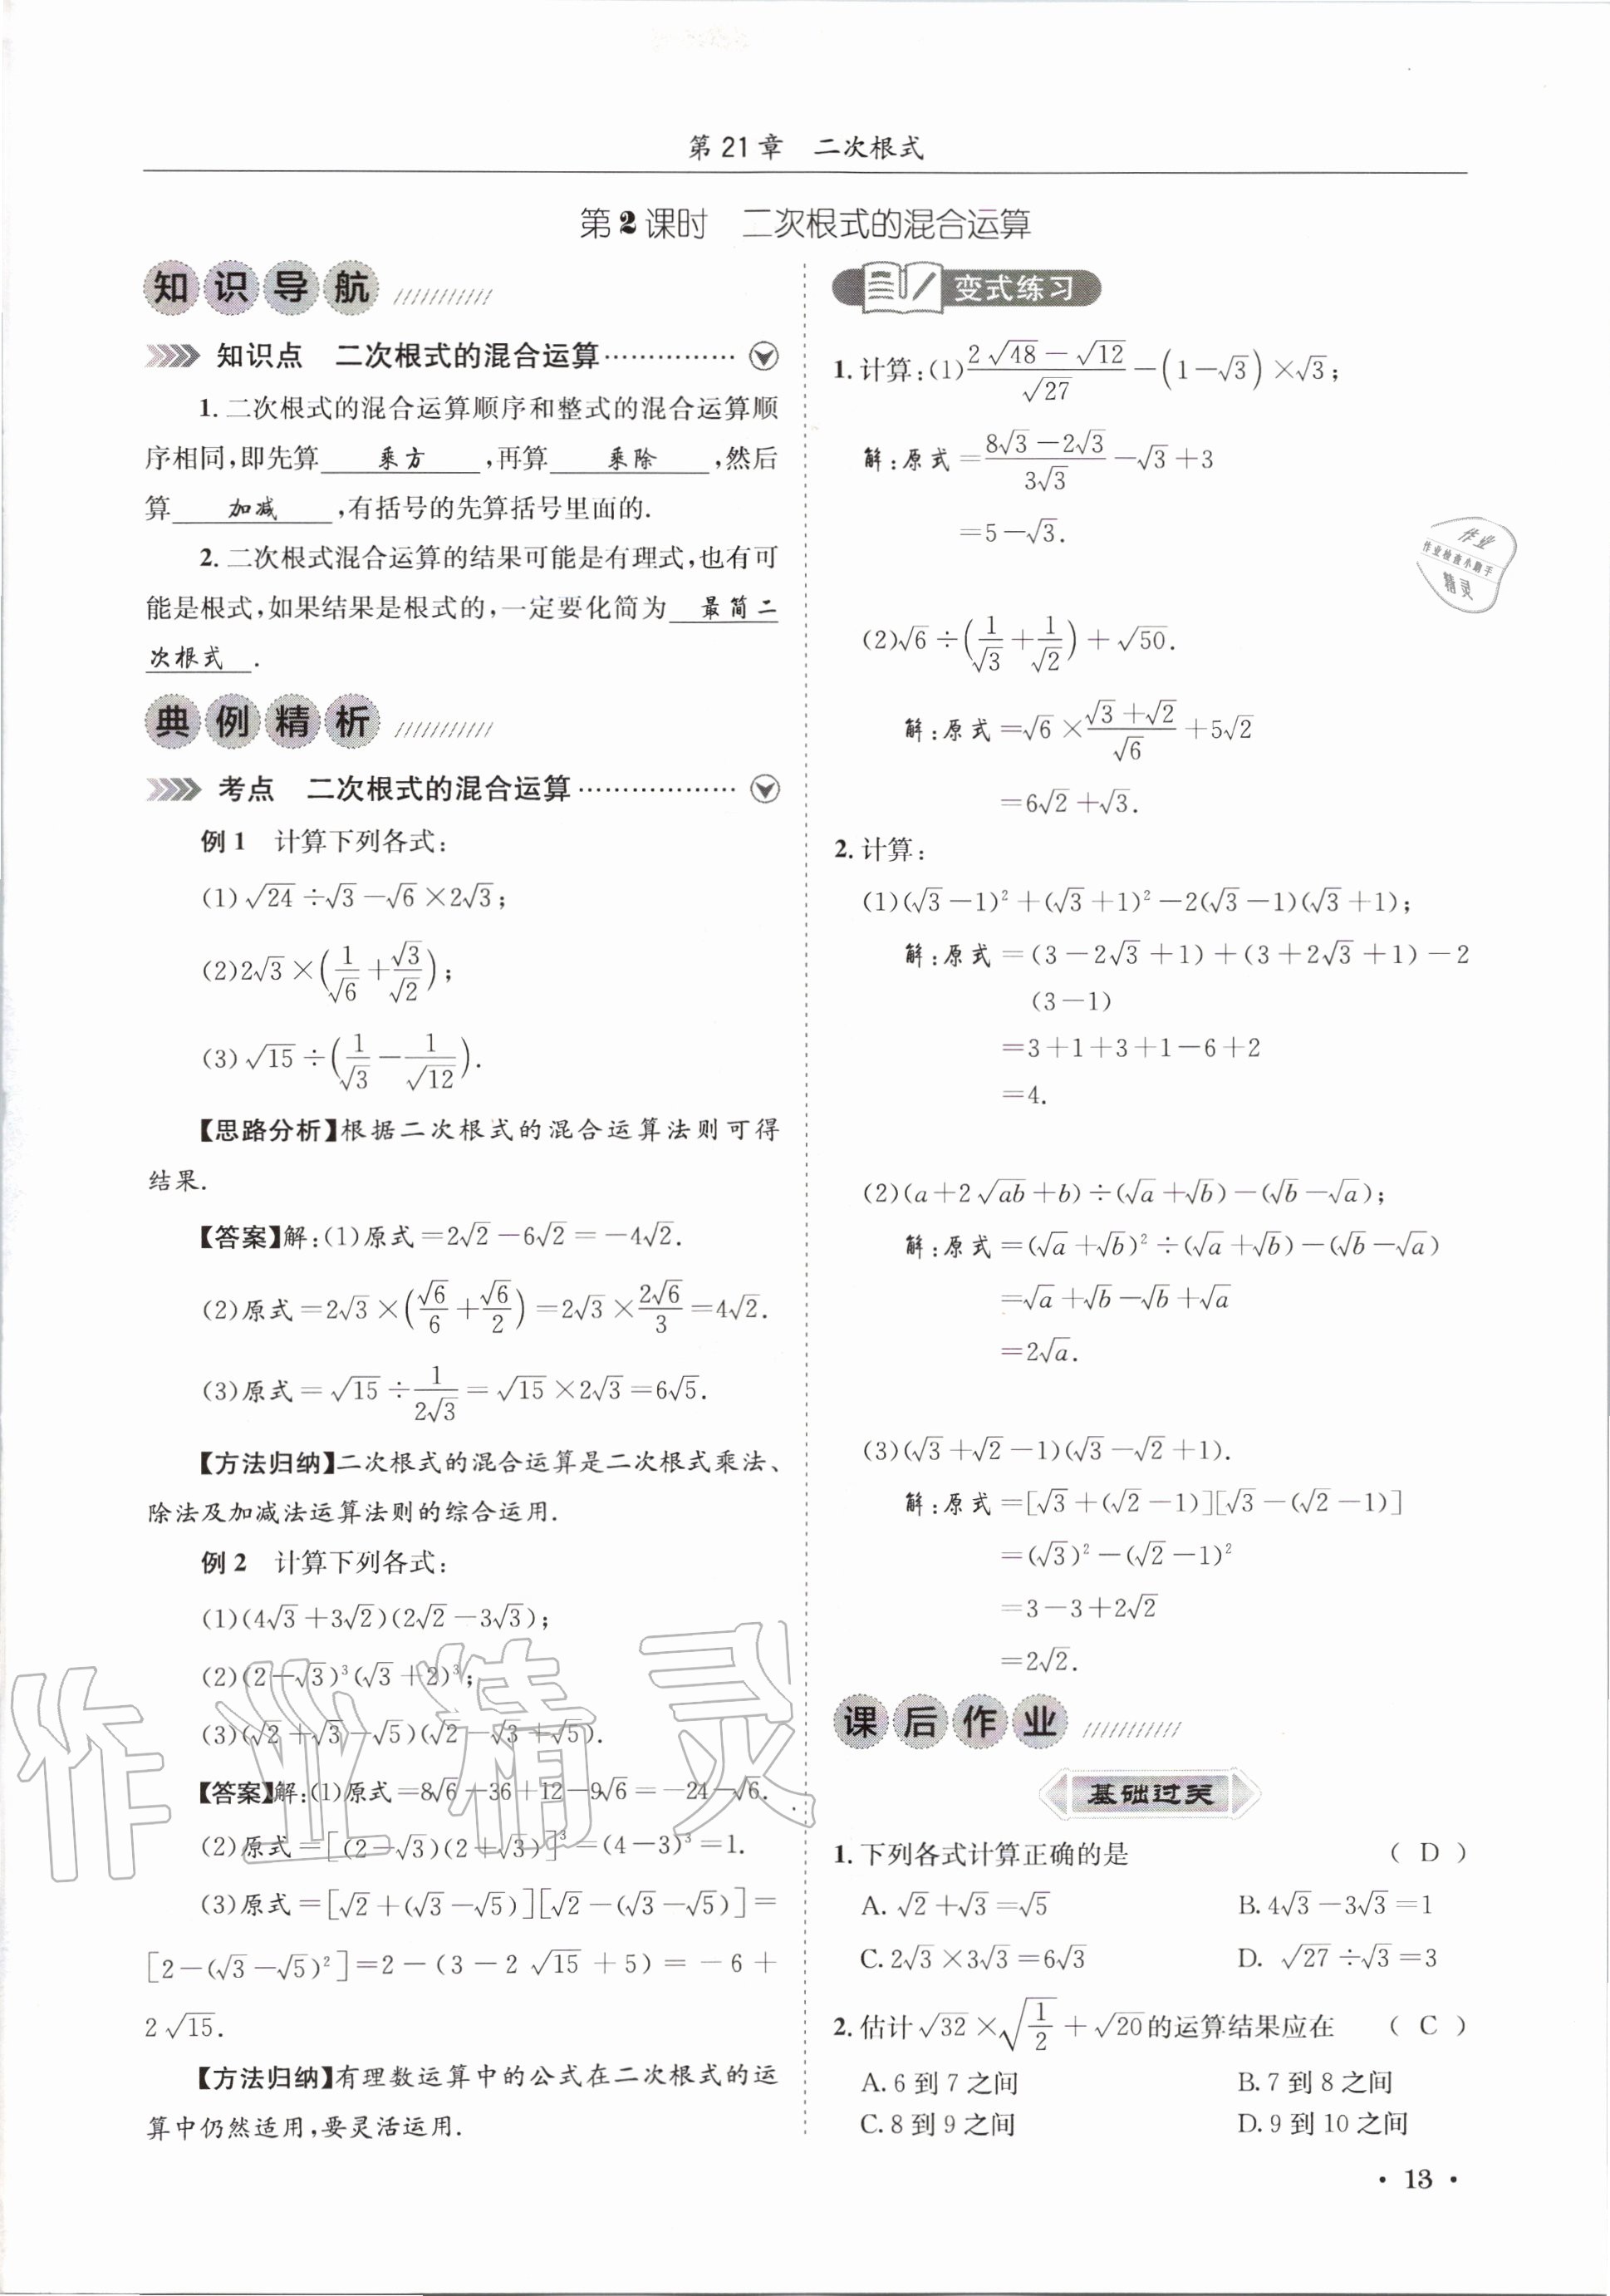 第21章 二次根式
第2课时 二次根式的混合运算
知识导航
知识点 二次根式的混合运算……………
1.二次根式的混合运算顺序和整式的混合运算顺
序相同,即先算 乘方 ,再算 乘除 ,然后
算 加减 ,有括号的先算括号里面的.
2.二次根式混合运算的结果可能是有理式,也有可
能是根式,如果结果是根式的,一定要化简为 最简二
次根式 .
典例精析
考点 二次根式的混合运算………………
例1 计算下列各式:
(1)√24÷√3-√6×2√3;
(2)2√3×(1/√6+√3/√2);
(3)√15÷(1/√3-1/√12).
【思路分析】根据二次根式的混合运算法则可得
结果.
【答案】解:(1)原式=2√2-6√2=-4√2.
(2)原式=2√3×(√6/6+√6/2)=2√3×2√6/3=4√2.
(3)原式=√15÷1/(2√3)=√15×2√3=6√5.
【方法归纳】二次根式的混合运算是二次根式乘法、
除法及加减法运算法则的综合运用.
例2 计算下列各式:
(1)(4√3+3√2)(2√2-3√3);
(2)(2-√3)³(√3+2)³;
(3)(√2+√3-√5)(√2-√3+√5).
【答案】解:(1)原式=8√6-36+12-9√6=-24-√6.
(2)原式=[(2-√3)(2+√3)]³=(4-3)³=1.
(3)原式=[√2+(√3-√5)][√2-(√3-√5)]=
[2-(√3-√5)²]=2-(3-2√15+5)=-6+
2√15.
【方法归纳】有理数运算中的公式在二次根式的运
算中仍然适用,要灵活运用.
变式练习
1.计算:(1)(2√48-√12)/√27-(1-√3)×√3;
解:原式=(8√3-2√3)/(3√3)-√3+3
=5-√3.
(2)√6÷(1/√3+1/√2)+√50.
解:原式=√6×(√3+√2)/√6+5√2
=6√2+√3.
2.计算:
(1)(√3-1)²+(√3+1)²-2(√3-1)(√3+1);
解:原式=(3-2√3+1)+(3+2√3+1)-2
(3-1)
=3+1+3+1-6+2
=4.
(2)(a+2√ab+b)÷(√a+√b)-(√b-√a);
解:原式=(√a+√b)²÷(√a+√b)-(√b-√a)
=√a+√b-√b+√a
=2√a.
(3)(√3+√2-1)(√3-√2+1).
解:原式=[√3+(√2-1)][√3-(√2-1)]
=(√3)²-(√2-1)²
=3-3+2√2
=2√2.
课后作业
基础过关
1.下列各式计算正确的是 ( D )
A.√2+√3=√5 B.4√3-3√3=1
C.2√3×3√3=6√3 D.√27÷√3=3
2.估计√32×√(1/2)+√20的运算结果应在 ( C )
A.6到7之间 B.7到8之间
C.8到9之间 D.9到10之间
·13·
作业
作业检查小助手
精灵
作业精灵